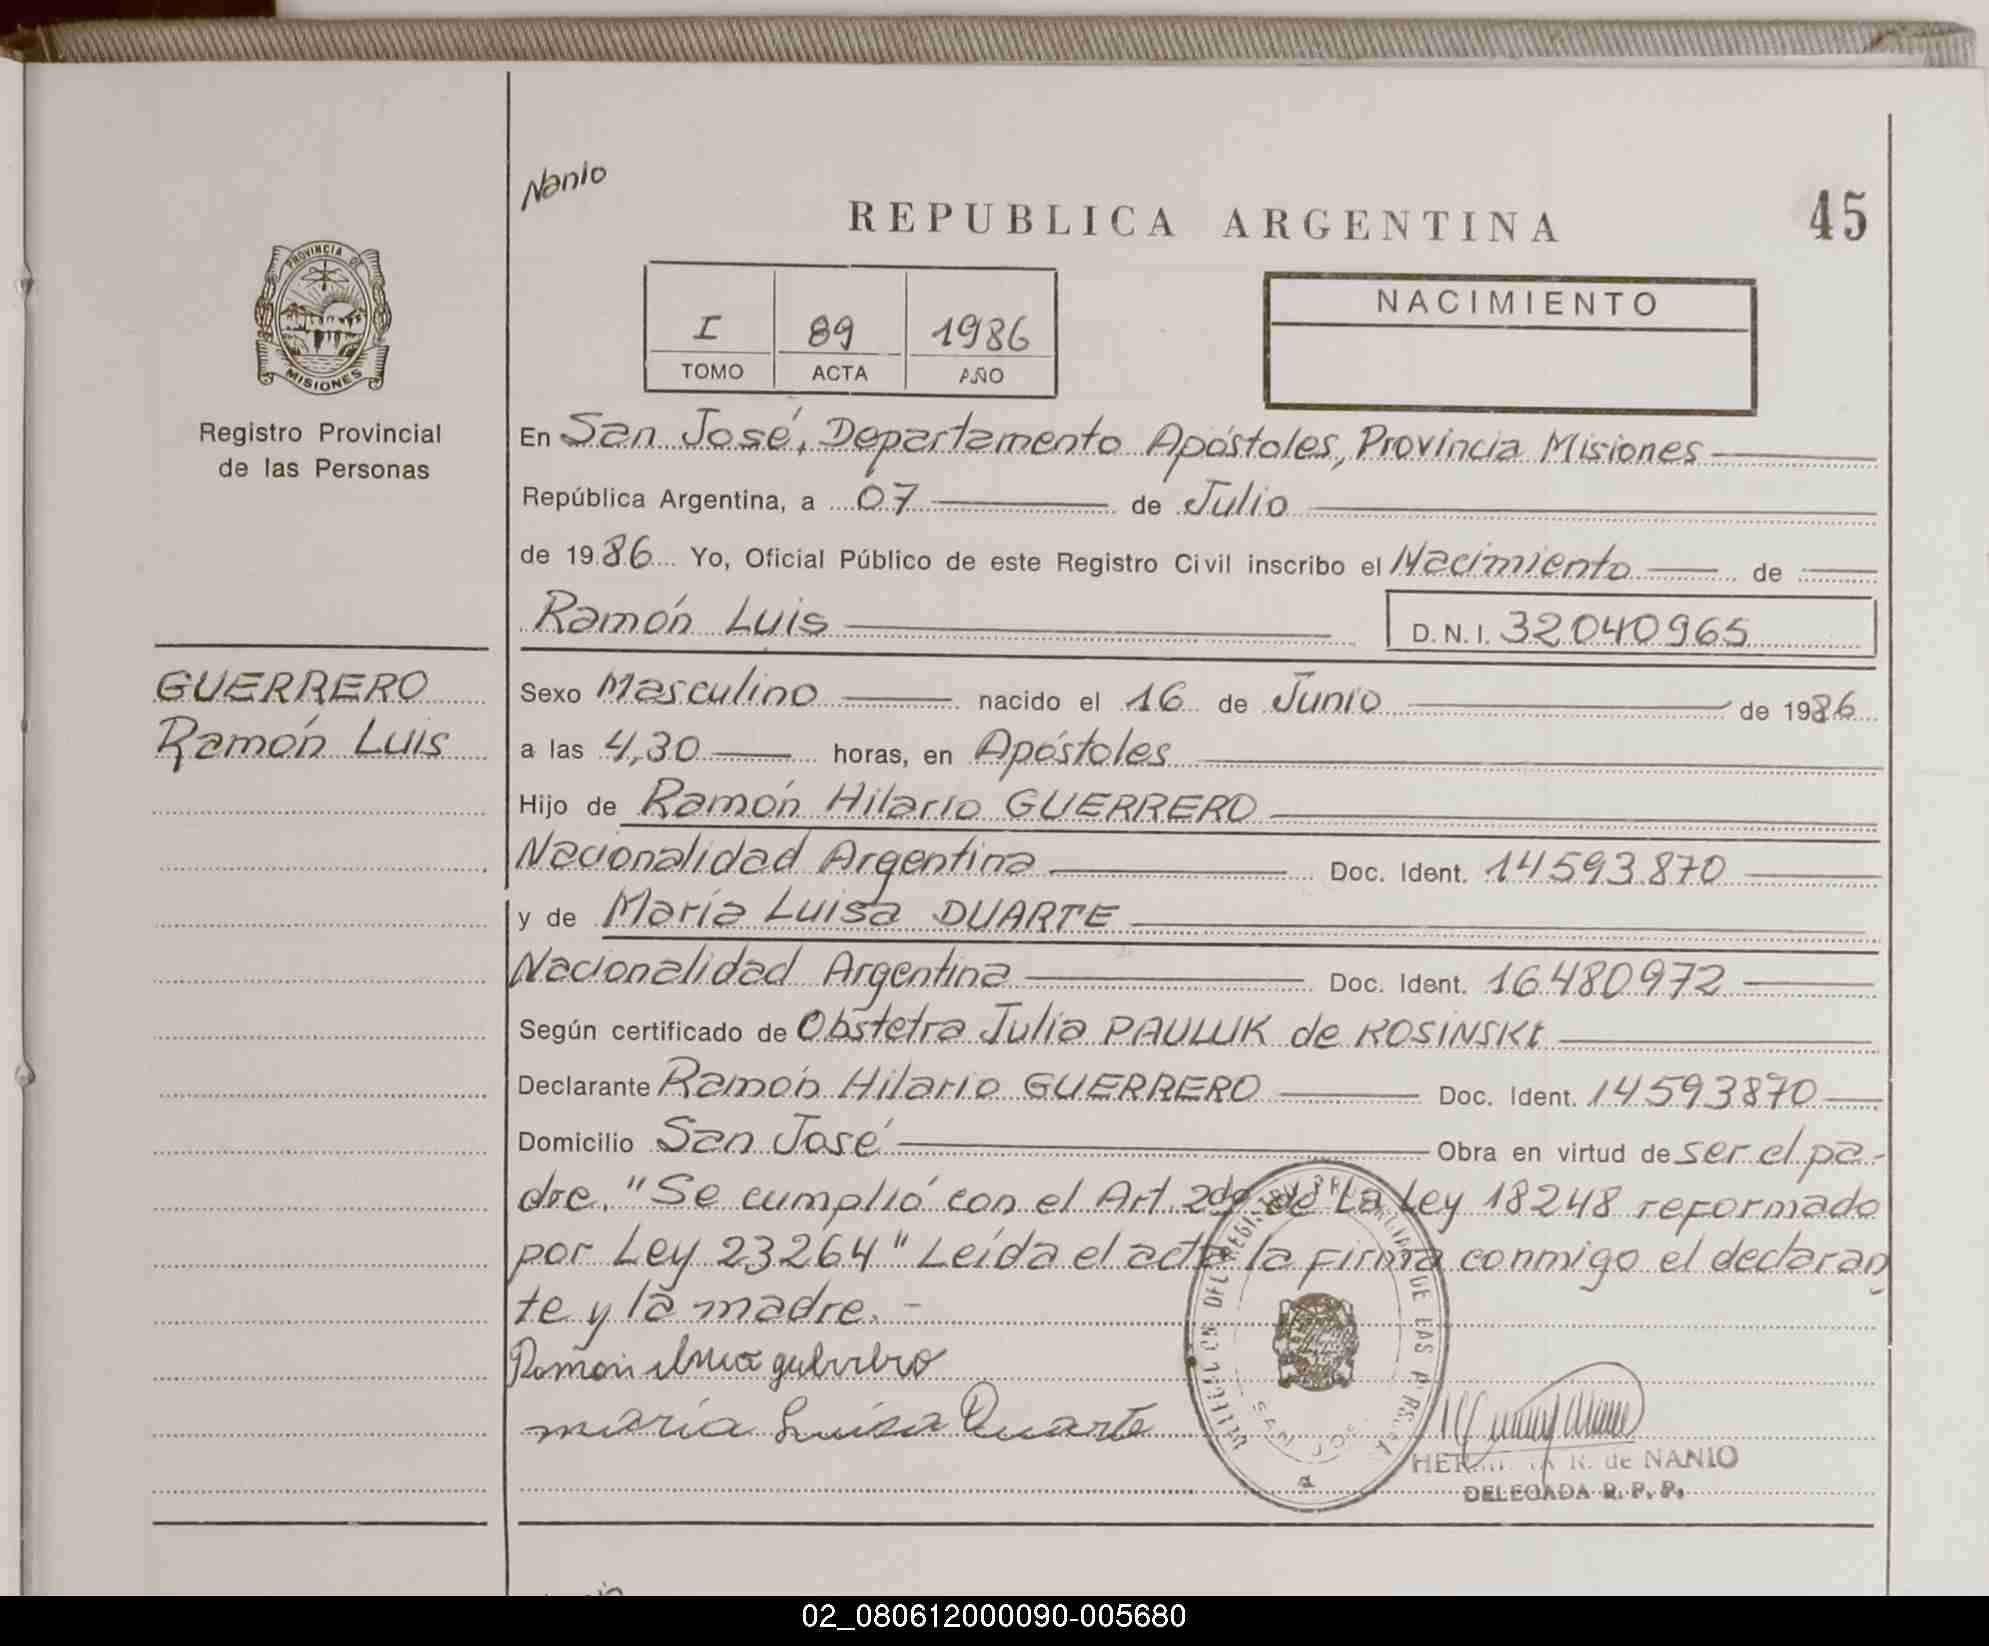 Nanio
REPUBLICA ARGENTINA
45
PROVINCIA DE
MISIONES
Registro Provincial
de las Personas
I 89 1986
TOMO ACTA AÑO
NACIMIENTO
En San José, Departamento Apóstoles, Provincia Misiones
República Argentina, a 07 de Julio
de 1986 Yo, Oficial Público de este Registro Civil inscribo el Nacimiento de
Ramón Luis D.N.I. 32040965
GUERRERO
Ramón Luis
Sexo Masculino nacido el 16 de Junio de 1986
a las 4,30 horas, en Apóstoles
Hijo de Ramón Hilario GUERRERO
Nacionalidad Argentina Doc. Ident. 14593870
y de María Luisa DUARTE
Nacionalidad Argentina Doc. Ident. 16480972
Según certificado de Obstetra Julia PAULUK de ROSINSKI
Declarante Ramón Hilario GUERRERO Doc. Ident. 14593870
Domicilio San José Obra en virtud de ser el pa-
dre. "Se cumplió con el Art. 2do de La Ley 18248 reformado
por Ley 23264" Leída el acta la firma conmigo el declaran
te y la madre.-
Ramon guerrero
maria Luisa Duarte
DEL REGISTRO PROVINCIAL DE LAS PERSONAS
SAN JOSE
R. de NANIO
DELEGADA R. P. P.
02_080612000090-005680